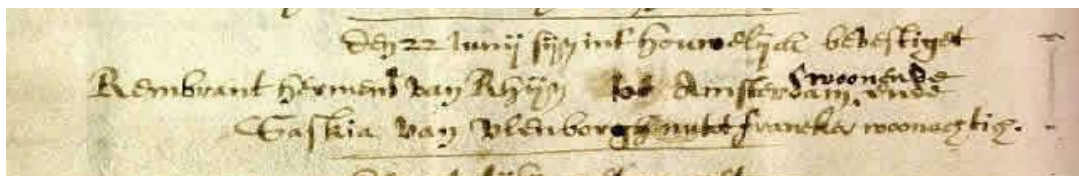 den 22 Junij sijn int houwelijck bevestiget
Rembrant Hermens van Rhijn tot Amsterdam woonende ende
Saskia van Vlenborgh nu tot franeker woonagtig.